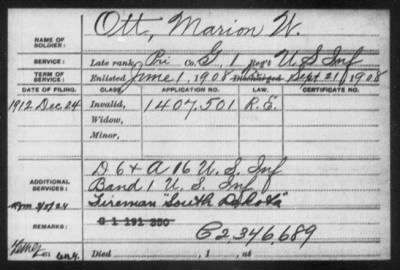 Ott, Marion W.
NAME OF SOLDIER:
SERVICE: Late rank, Pri Co. G, 1 Reg't U S Inf
TERM OF SERVICE: Enlisted June 1, 1908 Discharged Sept 21, 1908
DATE OF FILING. CLASS. APPLICATION NO. LAW. CERTIFICATE NO.
1912 Dec. 24 Invalid, 1407,501 R.E.
Widow,
Minor,
D 6 & A 16 U. S. Inf
ADDITIONAL SERVICES: Band 1 U. S. Inf
Fireman "South Dakota"
C 1 191 350
REMARKS: C2,346,689
Died , 1 , at